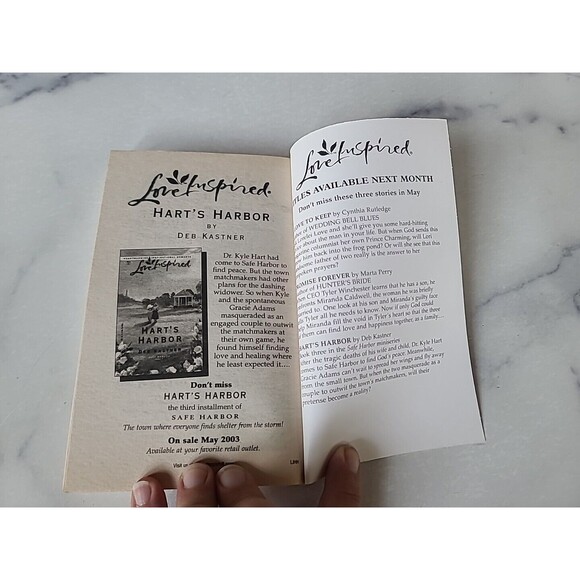 Love Inspired®
HART'S HARBOR
BY
DEB KASTNER
Love Inspired
HART'S
HARBOR
DEB KASTNER
Dr. Kyle Hart had
come to Safe Harbor to
find peace. But the town
matchmakers had other
plans for the dashing
widower. So when Kyle
and the spontaneous
Gracie Adams
masqueraded as an
engaged couple to outwit
the matchmakers at
their own game, he
found himself finding
love and healing where
he least expected it....
Don't miss
HART'S HARBOR
the third installment of
SAFE HARBOR
The town where everyone finds shelter from the storm!
On sale May 2003
Available at your favorite retail outlet.
Visit us
Love Inspired®
TLES AVAILABLE NEXT MONTH
Don't miss these three stories in May
OVE TO KEEP by Cynthia Rutledge
of WEDDING BELL BLUES
Love and she'll give you some hard-hitting
about the man in your life. But when God sends this
columnist her own Prince Charming, will Lori
him back into the frog pond? Or will she see that this
me father of two really is the answer to her
poken prayers?
OMISE FOREVER by Marta Perry
thor of HUNTER'S BRIDE
en CEO Tyler Winchester learns that he has a son, he
nfronts Miranda Caldwell, the woman he was briefly
ed to. One look at his son and Miranda's guilty face
Tyler all he needs to know. Now if only God could
lp Miranda fill the void in Tyler's heart so that the three
em can find love and happiness together, as a family....
HART'S HARBOR by Deb Kastner
ook three in the Safe Harbor miniseries
fter the tragic deaths of his wife and child, Dr. Kyle Hart
es to Safe Harbor to find God's peace. Meanwhile,
Gracie Adams can't wait to spread her wings and fly away
from the small town. But when the two masquerade as a
ouple to outwit the town's matchmakers, will their
pretense become a reality?